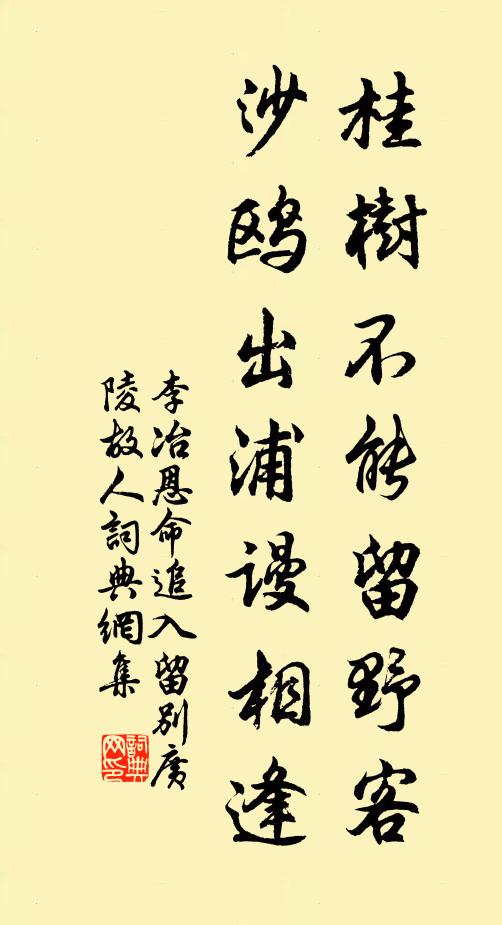 桂樹不能留野客
沙鸥出浦謾相逢
李冶恩命追入留別廣
陵故人詞典網集
詞典网印